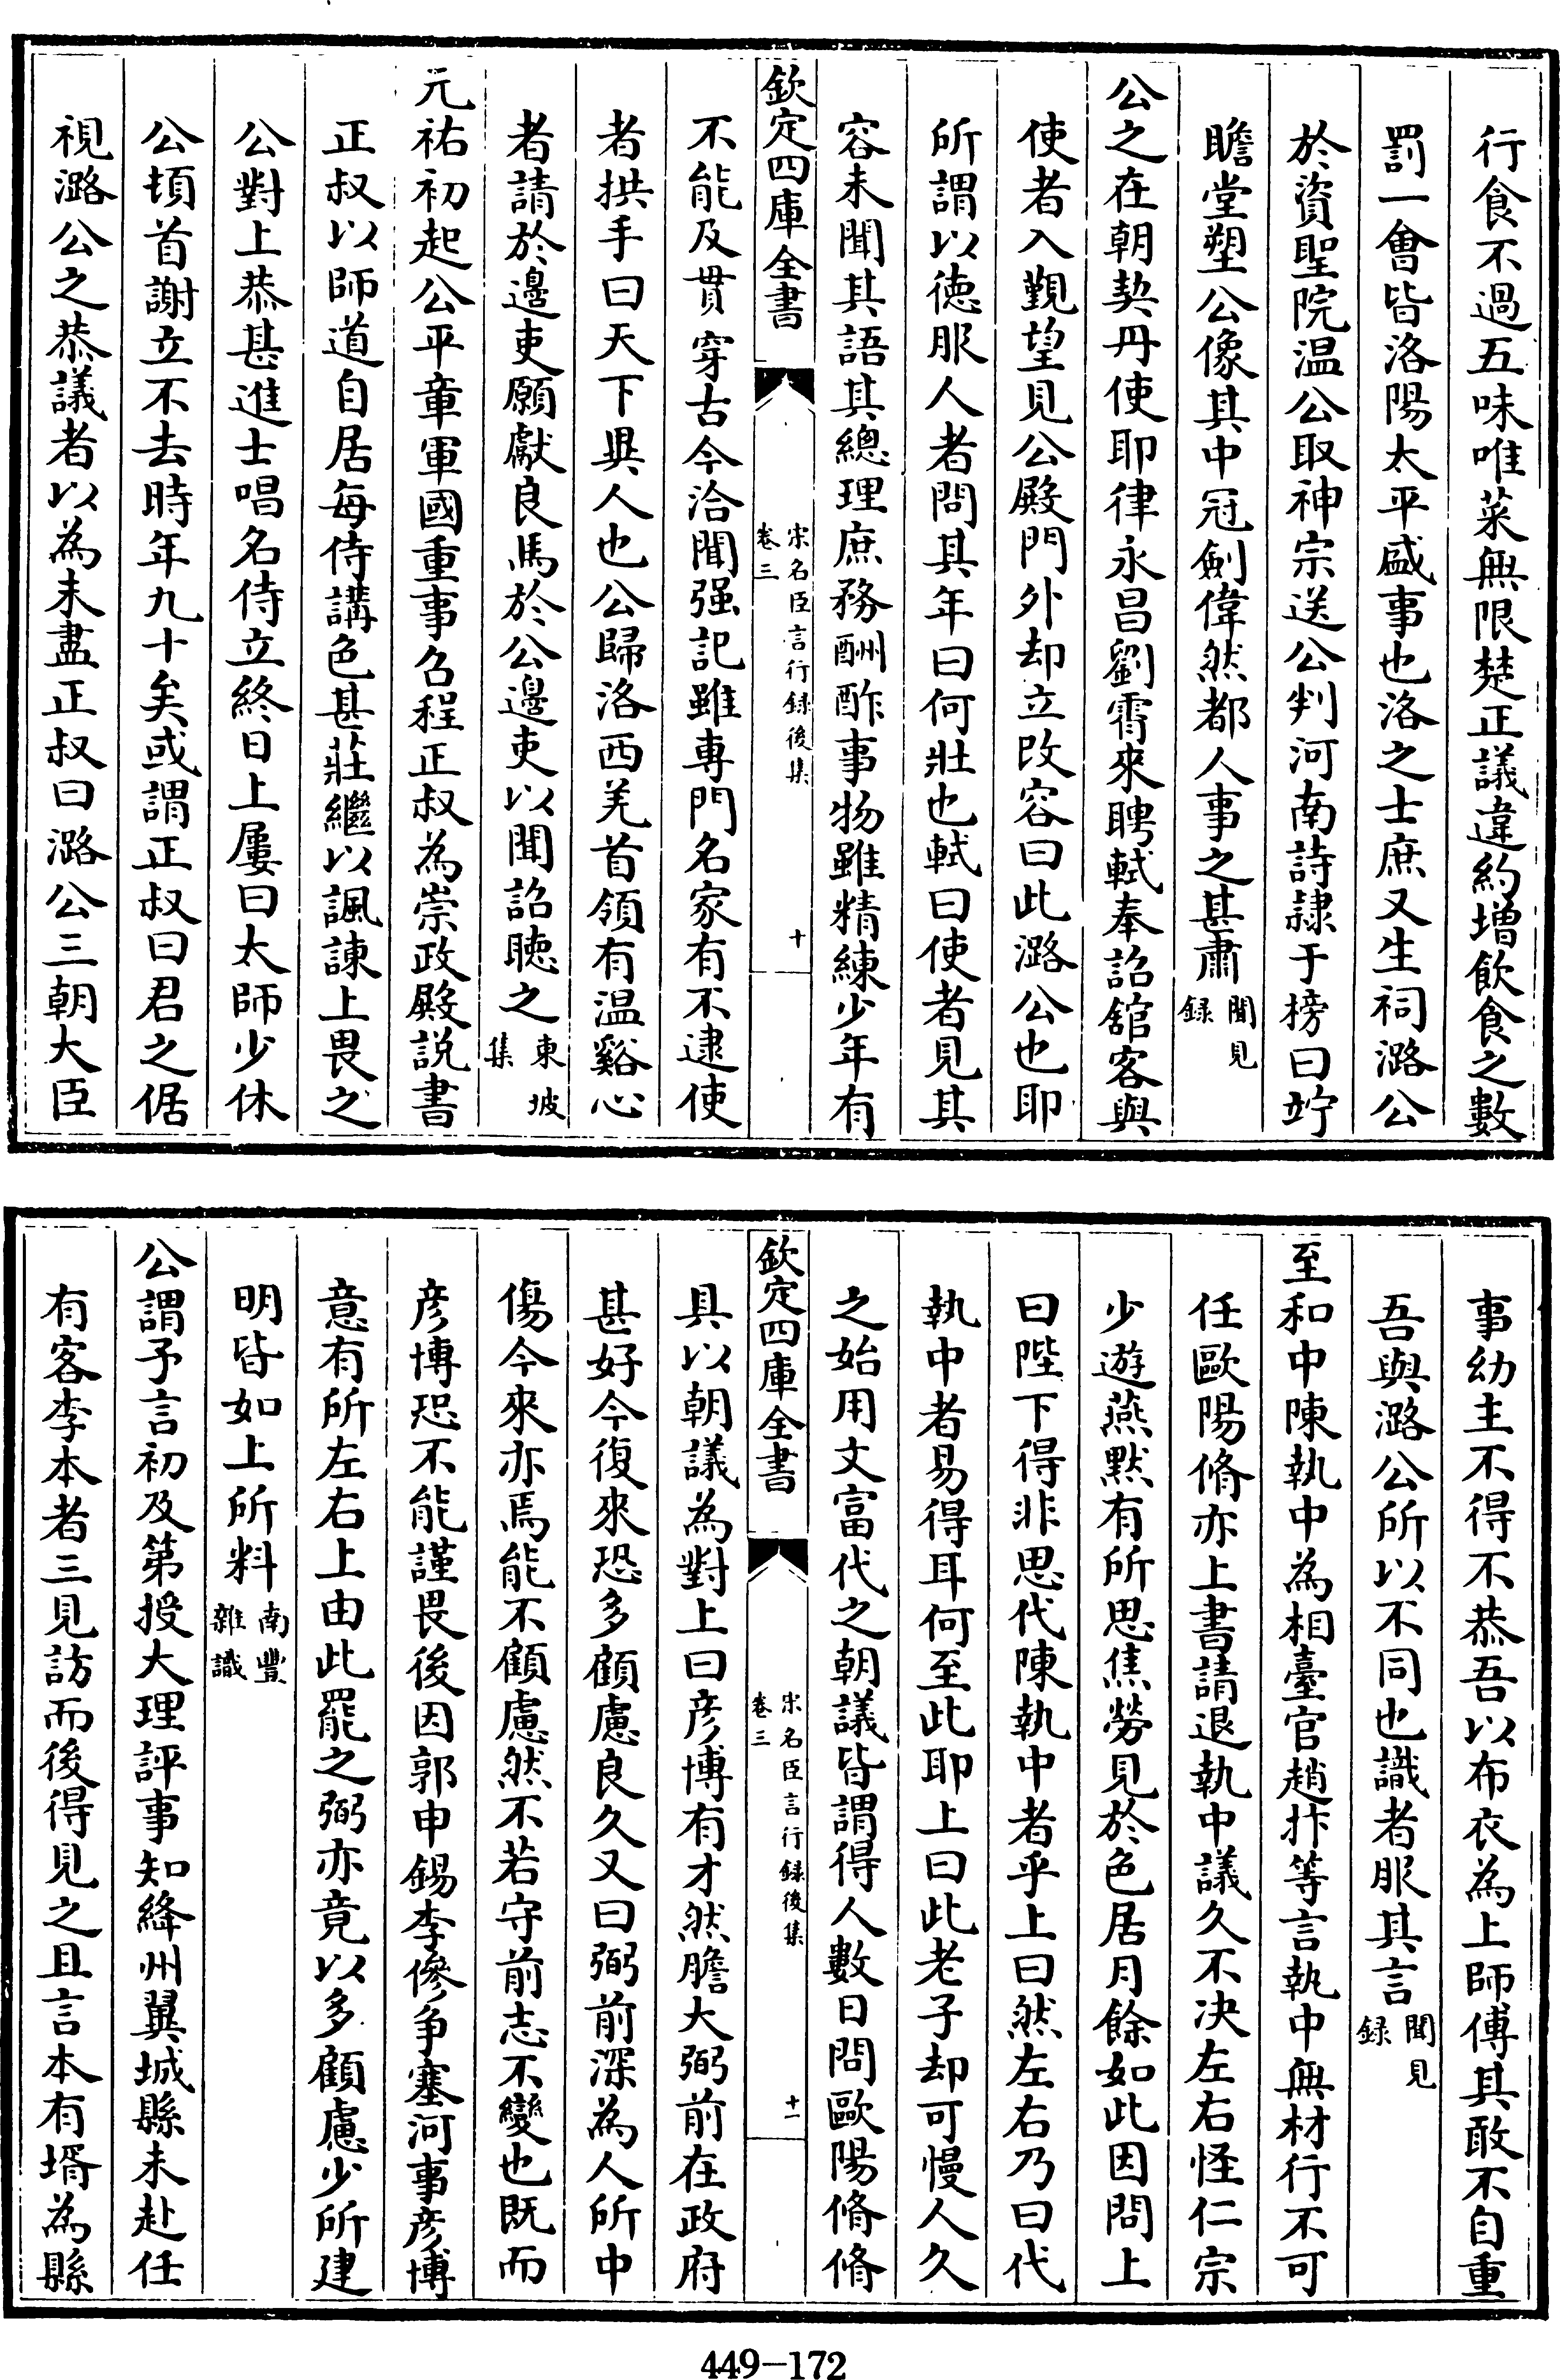 行食不過五味唯菜無限楚正議違約增飲食之數
罰一會皆洛陽太平盛事也洛之士庶又生祠潞公
於資聖院温公取神宗送公判河南詩隷于榜曰竚
瞻堂塑公像其中冠劍偉然都人事之甚肅聞見録
公之在朝契丹使耶律永昌劉霄來聘軾奉詔舘客與
使者入覲望見公殿門外却立改容曰此潞公也耶
所謂以徳服人者問其年曰何壯也軾曰使者見其
容未聞其語其總理庶務酬酢事物雖精練少年有
欽定四庫全書
宋名臣言行録後集
卷三
十
不能及貫穿古今洽聞强記雖專門名家有不逮使
者拱手曰天下異人也公歸洛西羌首領有温谿心
者請於邊吏願獻良馬於公邊吏以聞詔聴之東坡集
元祐初起公平章軍國重事召程正叔為崇政殿説書
正叔以師道自居每侍講色甚莊繼以諷諫上畏之
公對上恭甚進士唱名侍立終日上屢曰太師少休
公頓首謝立不去時年九十矣或謂正叔曰君之倨
視潞公之恭議者以為未盡正叔曰潞公三朝大臣
事幼主不得不恭吾以布衣為上師傅其敢不自重
吾與潞公所以不同也識者服其言聞見録
至和中陳執中為相臺官趙抃等言執中無材行不可
任歐陽脩亦上書請退執中議久不决左右怪仁宗
少遊燕黙有所思焦勞見於色居月餘如此因問上
曰陛下得非思代陳執中者乎上曰然左右乃曰代
執中者易得耳何至此耶上曰此老子却可慢人久
之始用文富代之朝議皆謂得人數日問歐陽脩脩
欽定四庫全書
宋名臣言行録後集
卷三
十一
具以朝議為對上曰彦博有才然膽大弼前在政府
甚好今復來恐多顧慮良久又曰弼前深為人所中
傷今來亦焉能不顧慮然不若守前志不變也既而
彦博恐不能謹畏後因郭申錫李參争塞河事彦博
意有所左右上由此罷之弼亦竟以多顧慮少所建
明皆如上所料南豐雜識
公謂予言初及第授大理評事知絳州翼城縣未赴任
有客李本者三見訪而後得見之且言本有壻為縣
449-172